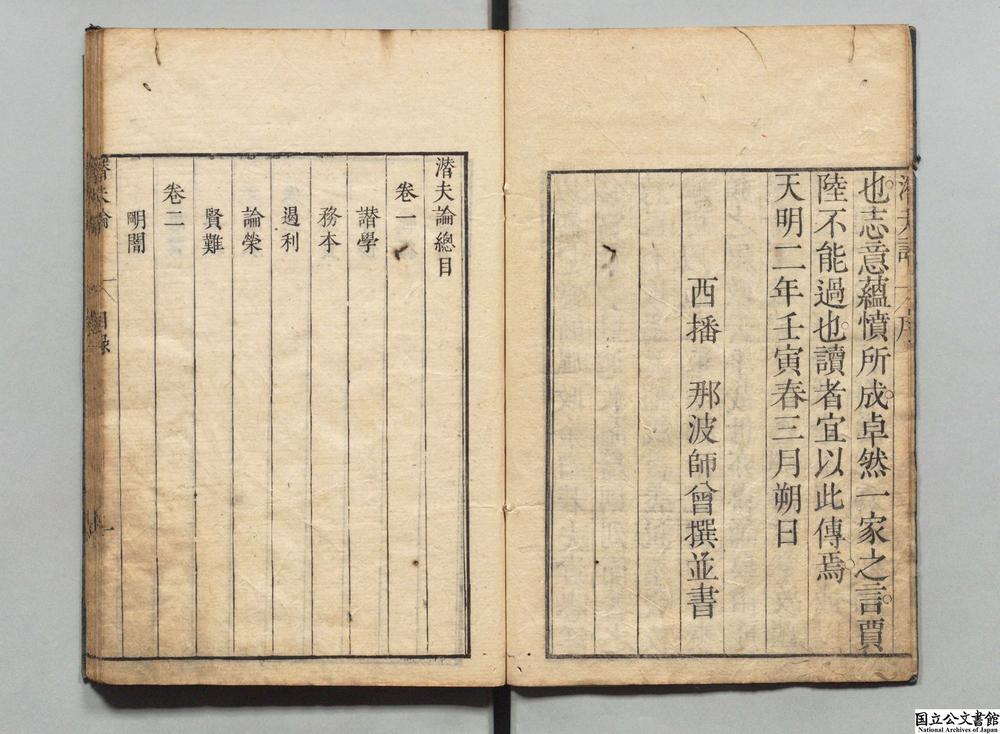 也。志意蘊憤所成。卓然一家之言。賈
陸不能過也。讀者宜以此傳焉。
天明二年壬寅春三月朔日
西播 那波師曾撰並書
潛夫論總目
卷一
讃學
務本
遏利
論榮
賢難
卷二
明闇
潛夫論
目錄
一
国立公文書館
National Archives of Japan